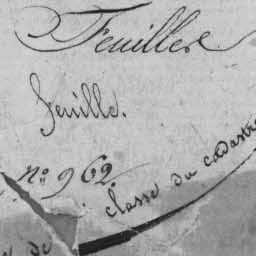 Feuillere
feuille.
nº 962
classe du cadastre
de